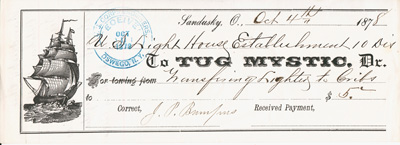 Sandusky, O. Oct 4th 1878
U.S. Light House Establishment 10 Dis
To TUG MYSTIC, Dr.
For towing from Transfiring Lighter to Cribs
to $ 5.
Correct, Received Payment,
OSWEGO, N.Y.
OCT